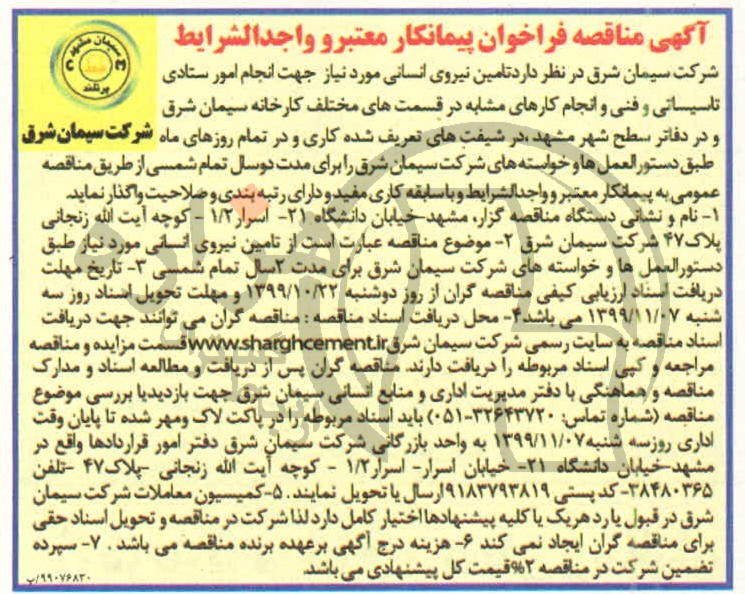 آگهی مناقصه فراخوان پیمانکار معتبر و واجدالشرایط
سیمان مشهد
پرتلند
شرکت سیمان شرق
شرکت سیمان شرق در نظر دارد تامین نیروی انسانی مورد نیاز جهت انجام امور ستادی
تاسیساتی و فنی و انجام کارهای مشابه در قسمت های مختلف کارخانه سیمان شرق
و در دفاتر سطح شهر مشهد، در شیفت های تعریف شده کاری و در تمام روزهای ماه
طبق دستورالعمل ها و خواسته های شرکت سیمان شرق را برای مدت دو سال تمام شمسی از طریق مناقصه
عمومی به پیمانکار معتبر و واجدالشرایط و با سابقه کاری مفید و دارای رتبه بندی و صلاحیت واگذار نماید.
۱- نام و نشانی دستگاه مناقصه گزار، مشهد-خیابان دانشگاه ۲۱- اسرار۱/۲ - کوچه آیت الله زنجانی
پلاک۴۷ شرکت سیمان شرق ۲- موضوع مناقصه عبارت است از تامین نیروی انسانی مورد نیاز طبق
دستورالعمل ها و خواسته های شرکت سیمان شرق برای مدت ۲سال تمام شمسی ۳- تاریخ مهلت
دریافت اسناد ارزیابی کیفی مناقصه گران از روز دوشنبه ۱۳۹۹/۱۰/۲۲ و مهلت تحویل اسناد روز سه
شنبه ۱۳۹۹/۱۱/۰۷ می باشد۴- محل دریافت اسناد مناقصه : مناقصه گران می توانند جهت دریافت
اسناد مناقصه به سایت رسمی شرکت سیمان شرق www.sharghcement.ir قسمت مزایده و مناقصه
مراجعه و کپی اسناد مربوطه را دریافت دارند. مناقصه گران پس از دریافت و مطالعه اسناد و مدارک
مناقصه و هماهنگی با دفتر مدیریت اداری و منابع انسانی سیمان شرق جهت بازدید یا بررسی موضوع
مناقصه (شماره تماس: ۳۲۶۴۳۷۲۰-۰۵۱) باید اسناد مربوطه را در پاکت لاک ومهر شده تا پایان وقت
اداری روزسه شنبه۱۳۹۹/۱۱/۰۷ به واحد بازرگانی شرکت سیمان شرق دفتر امور قراردادها واقع در
مشهد-خیابان دانشگاه ۲۱- خیابان اسرار- اسرار۱/۲ - کوچه آیت الله زنجانی -پلاک۴۷ -تلفن
۳۸۴۸۰۳۶۵- کد پستی ۹۱۸۳۷۹۳۸۱۹ارسال یا تحویل نمایند. ۵-کمیسیون معاملات شرکت سیمان
شرق در قبول یا رد هریک یا کلیه پیشنهادها اختیار کامل دارد لذا شرکت در مناقصه و تحویل اسناد حقی
برای مناقصه گران ایجاد نمی کند ۶- هزینه درج آگهی برعهده برنده مناقصه می باشد . ۷- سپرده
تضمین شرکت در مناقصه ۲%قیمت کل پیشنهادی می باشد.
۹۹۰۷۶۸۳۰/پ